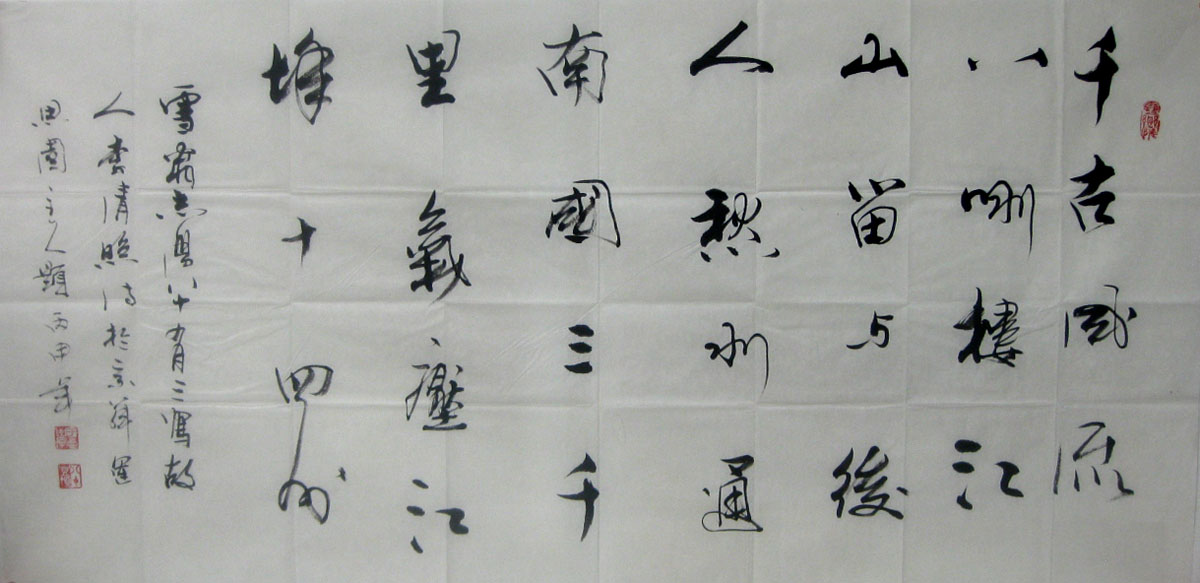 千古风流
八咏樓江
山留与後
人愁水通
南國三千
里氣壓江
城十四州
雪翁志八十有三寫故
人李清照诗於京華
思園主人題丙申年